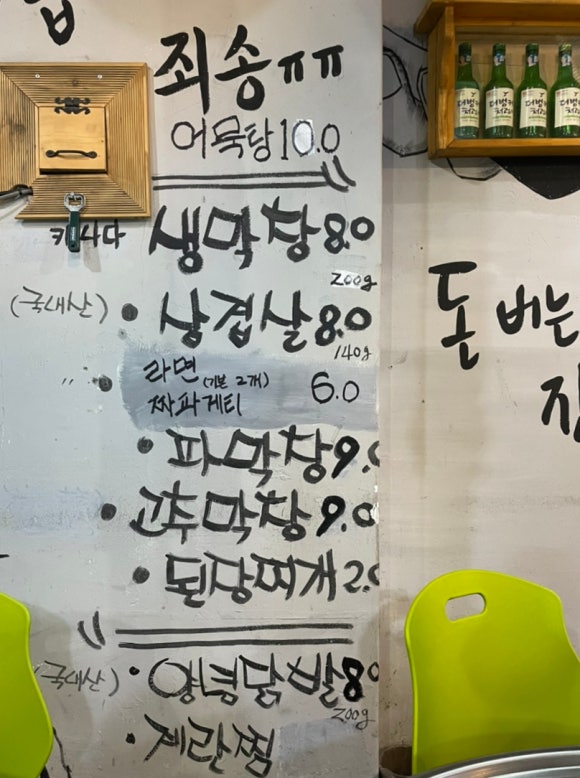 죄송ㅠㅠ
어묵탕 10.0
캐나다 생막창 8.0
200g
(국내산) • 삼겹살 8.0
140g
〃 • 라면 (기본 2개) 6.0
짜파게티
• 파막창 9.0
• 고추막창 9.0
• 된장찌개 2.0
(국내산) • 양념닭발 8.0
200g
• 계란찜
돈 버는